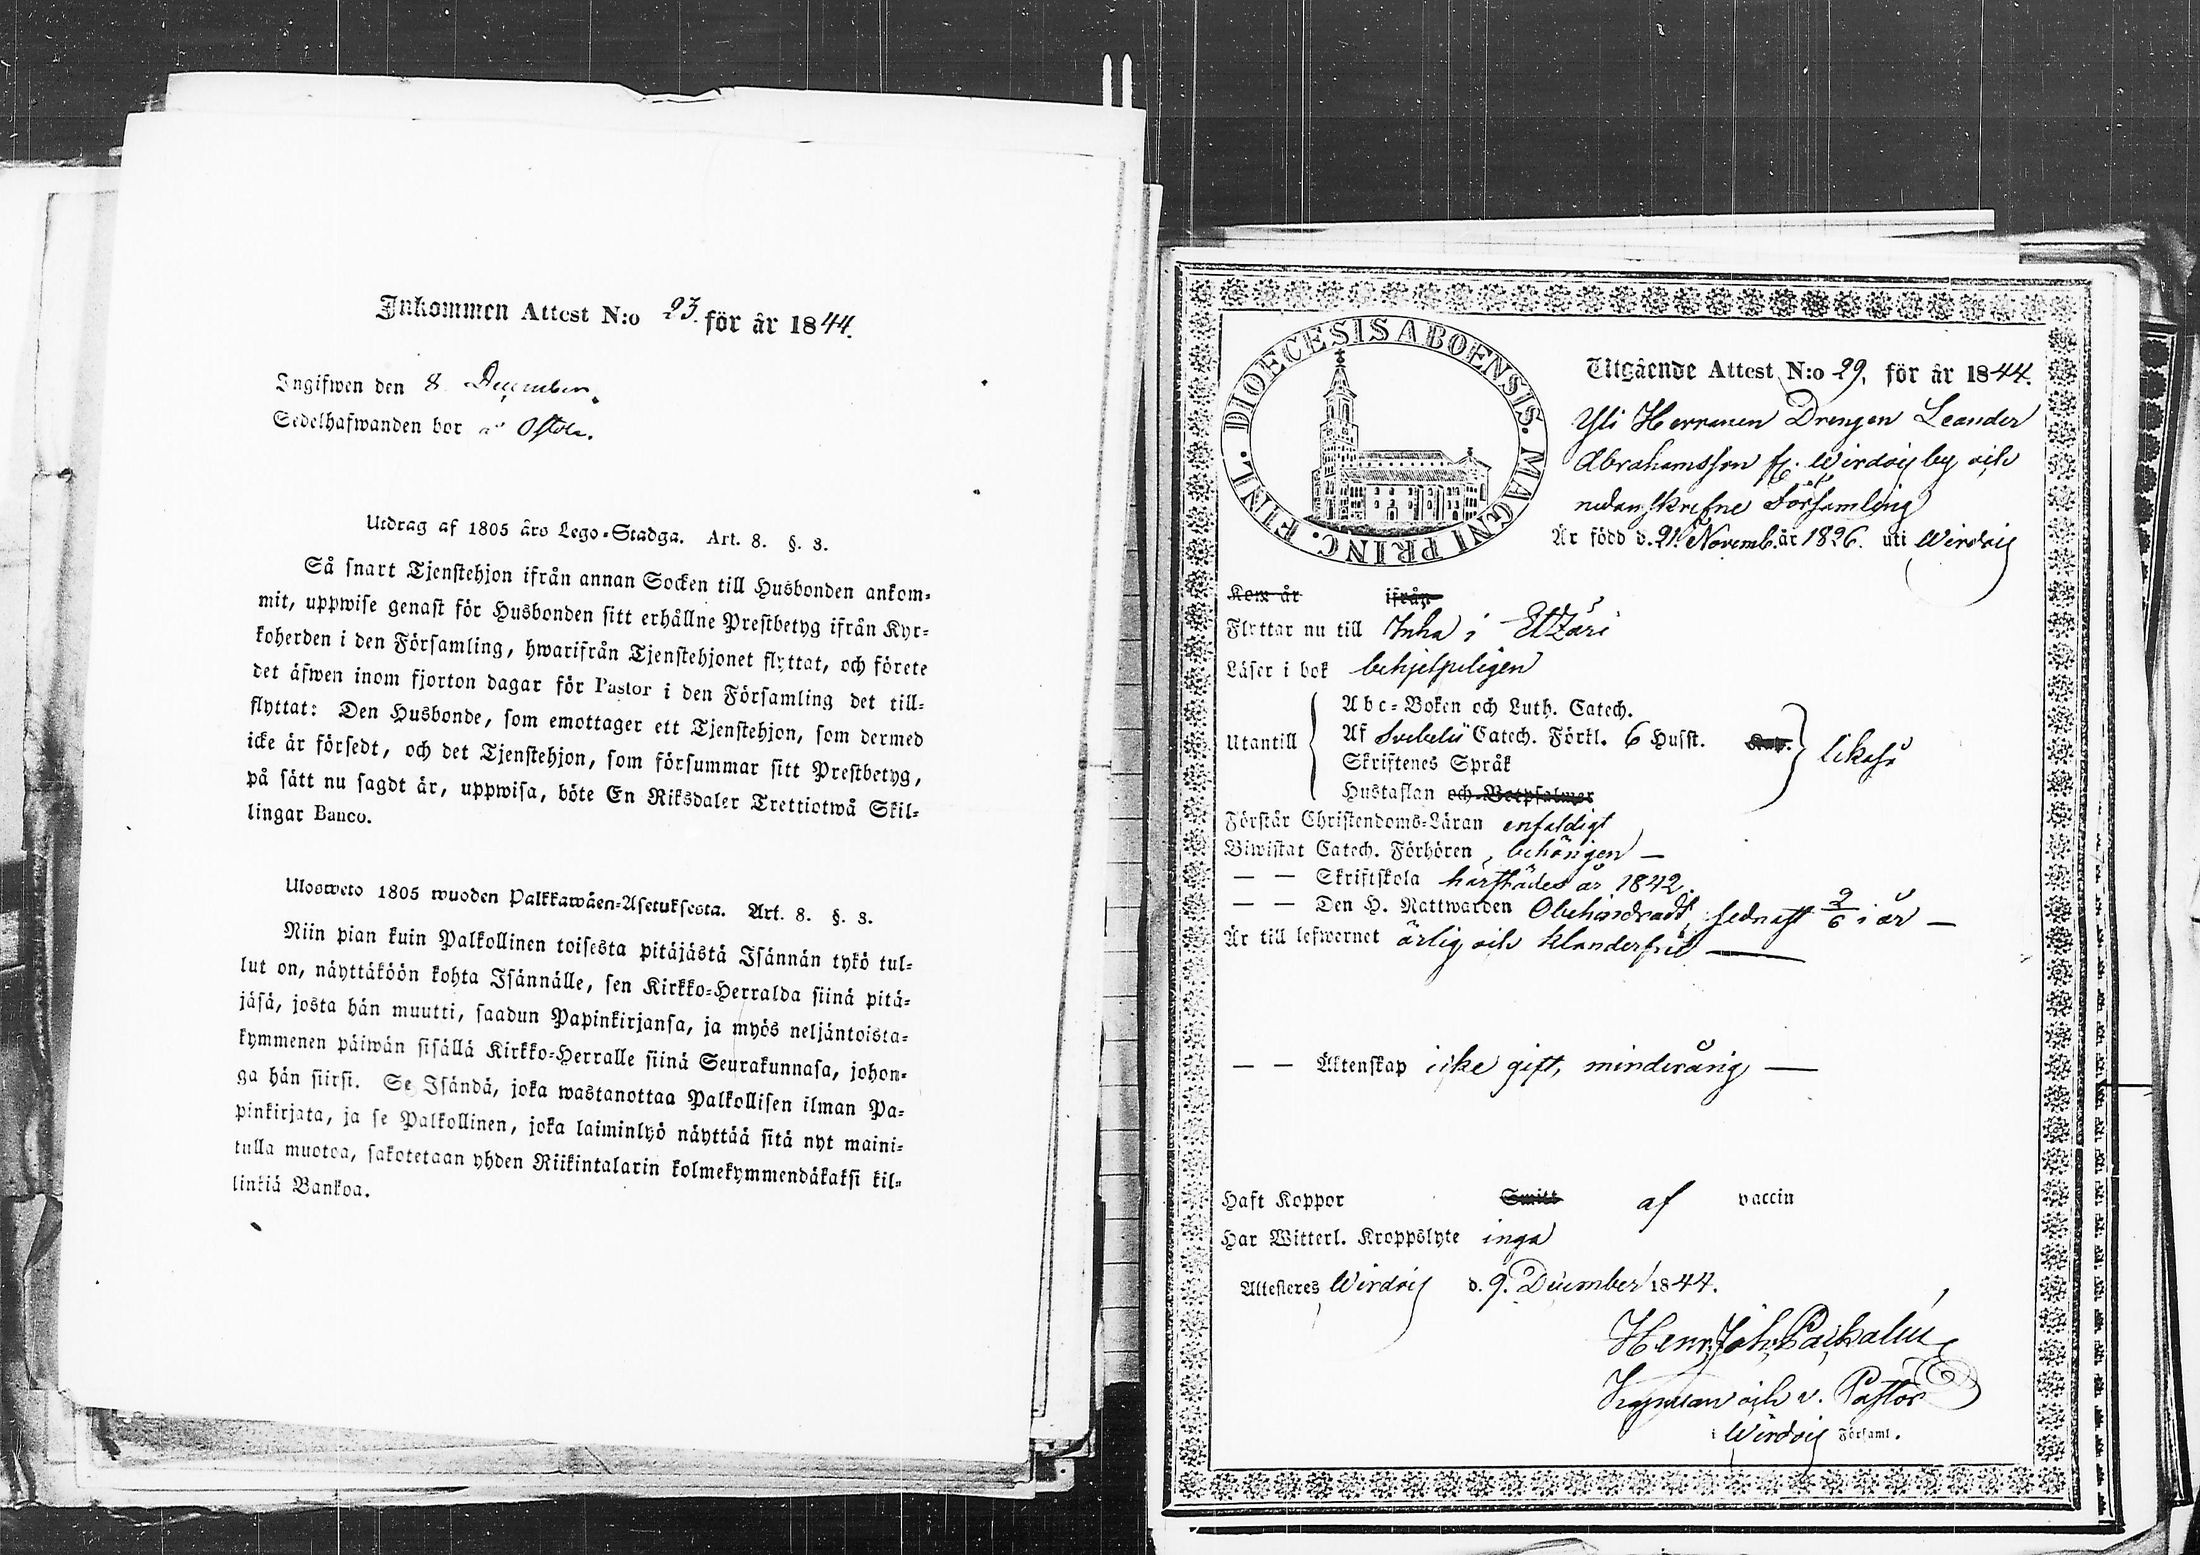 Inkommen Attest N:o 23. för år 1844.
Ingifwen den 8 December.
Sedelhafwanden bor
Utdrag af 1805 års Lego-Stadga. Art. 8. §. 3.
Så snart Tjenstehjon ifrån annan Socken till Husbonden ankom-
mit, uppwise genast för Husbonden sitt erhållne Prestbetyg ifrån Kyr-
koherden i den Församling, hwarifrån Tjenstehjonet flyttat, och förete
det äfwen inom fjorton dagar för Pastor i den Församling det till-
flyttat: Den Husbonde, som emottager ett Tjenstehjon, som dermed
icke är försedt, och det Tjenstehjon, som försummar sitt Prestbetyg,
på sätt nu sagdt är, uppwisa, böte En Riksdaler Trettiotwå Skil-
lingar Banco.
Ulosweto 1805 wuoden Palkkawäen-Asetuksesta. Art. 8. §. 3.
Niin pian kuin Palkollinen toisesta pitäjästä Isännän tykö tul-
lut on, näyttäköön kohta Isännälle, sen Kirkko-Herralda siinä pitä-
jäsä, josta hän muutti, saadun Papinkirjansa, ja myös neljäntoista-
kymmenen päiwän sisällä Kirkko-Herralle siinä Seurakunnasa, johon-
ga hän siirsi. Se Isändä, joka wastanottaa Palkollisen ilman Pa-
pinkirjata, ja se Palkollinen, joka laiminlyö näyttää sitä nyt maini-
tulla muotoa, sakotetaan yhden Riikintalarin kolmekymmendäkaksi kil-
linkiä Bankoa.
DIOECESIS ABOENSIS. MAGNI PRINC. FINL.
Utgående Attest N:o 29. för år 1844.
Yli Herranen Drengen Leander
Abrahamsson fr. Wirdois by och
nedanskrefne Församling
Är född d. 21. Novemb. år 1826. uti Wirdois
Kom år ifrån
Flyttar nu till Inha i Etzäri
Läser i bok behjelpeligen
Abc-Boken och Luth. Catech.
Utantill Af Svebelii Catech. Förkl. 6 Hufst. Kap. likaså
Skriftenes Språk
Hustaflan och Botpsalmer
Förstår Christendoms-Läran enfaldigt
Biwistat Catech. Förhören behörigen —
— — Skriftskola härstädes år 1842.
— — Den H. Nattwarden Obehindradt, sednast 2/6 i år —
Är till lefwernet ärlig och klanderfri —
— — Äktenskap icke gift, minderårig —
Haft Koppor Smitt af vaccin
Har Witterl. Kroppslyte inga
Attesteres Wirdois d. 9. December 1844.
Henr. Joh.
Kapellan och v. Pastor
i Wirdois Församl.